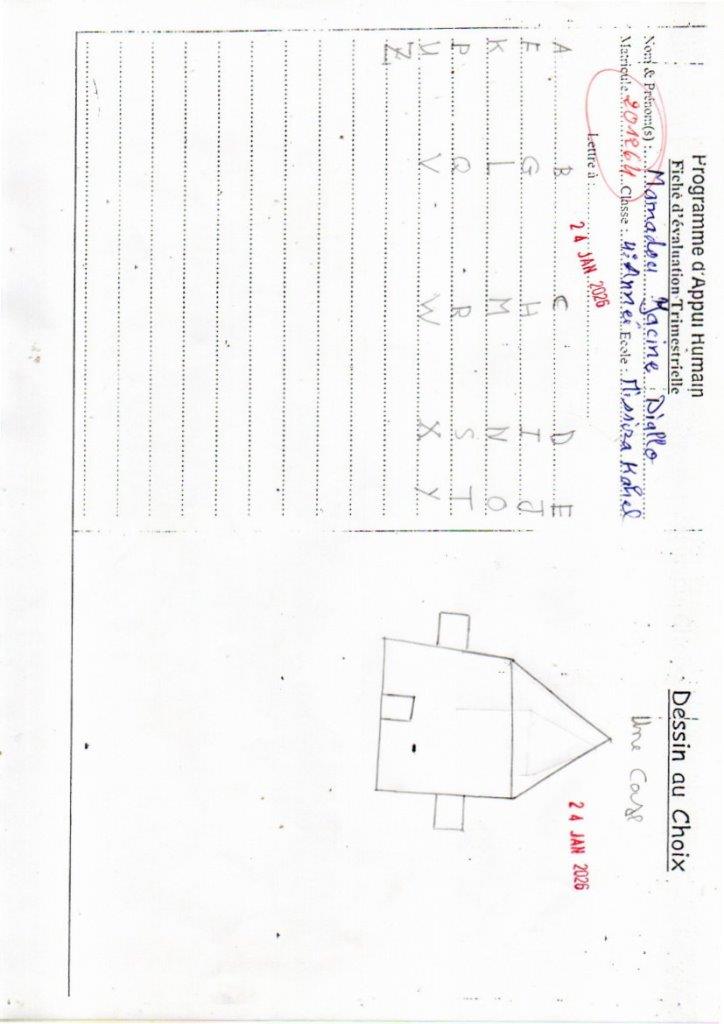 Programme d'Appui Humain
Fiche d'évaluation Trimestrielle
Nom & Prénom(s) : Mamadou Yacine Diallo
Matricule 201264 Classe : 4e Année Ecole : Missira Kahel
Lettre à :
24 JAN 2026
A B C D E
F G H I J
K L M N O
P Q R S T
U V W X Y
Z
Dessin au Choix
Une Case
24 JAN 2026